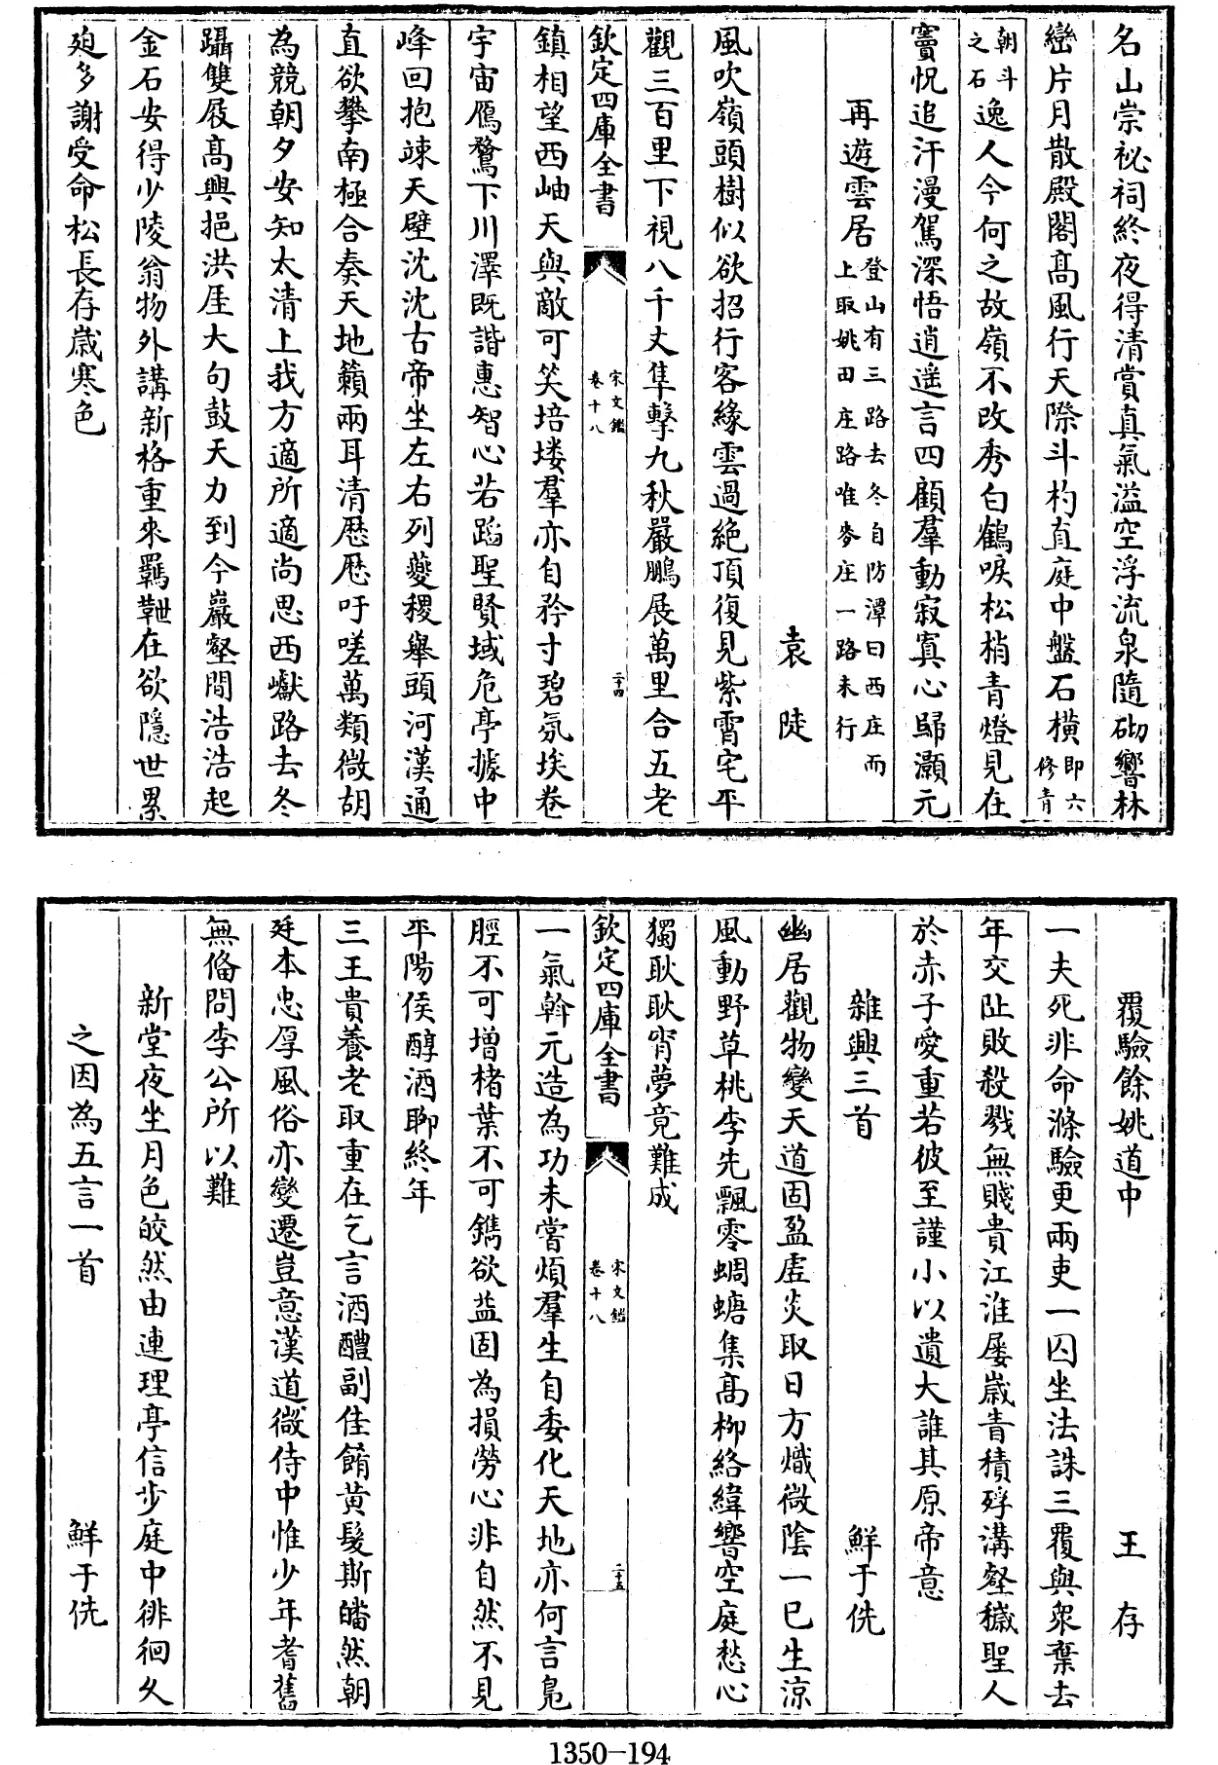 名山崇祕祠終夜得清賞真氣溢空浮流泉隨砌響林
巒片月散殿閣高風行天際斗杓直庭中盤石橫即六修青
朝斗之石逸人今何之故嶺不改秀白鶴唳松梢青燈見在
竇怳追汗漫駕深悟逍遥言四顧羣動寂寞心歸灝元
再遊雲居登山有三路去冬自防潭曰西庄而上取姚田庄路唯麥庄一路未行
袁陟
風吹嶺頭樹似欲招行客緣雲過絶頂復見紫霄宅平
觀三百里下視八千丈隼擊九秋嚴鵬展萬里合五老
欽定四庫全書
宋文鑑
卷十八
二十四
鎮相望西岫天與敵可笑培塿羣亦自矜寸碧氛埃卷
宇宙鴈鶩下川澤既諧惠智心若蹈聖賢域危亭據中
峰回抱竦天壁沈沈古帝坐左右列夔稷舉頭河漢通
直欲攀南極合奏天地籟兩耳清厯厯吁嗟萬類微胡
為競朝夕安知太清上我方適所適尚思西巘路去冬
躡雙屐高興挹洪厓大句鼓天力到今巖壑間浩浩起
金石安得少陵翁物外講新格重來羈紲在欲隱世累
廹多謝受命松長存嵗寒色
覆驗餘姚道中
王存
一夫死非命滌驗更兩吏一囚坐法誅三覆與衆棄去
年交阯敗殺戮無賤貴江淮屢嵗眚積殍溝壑穢聖人
於赤子愛重若彼至謹小以遺大誰其原帝意
雜興三首
鮮于侁
幽居觀物變天道固盈虛炎取日方熾微陰一巳生涼
風動野草桃李先飄零蜩螗集高柳絡緯響空庭愁心
獨耿耿宵夢竟難成
欽定四庫全書
宋文鑑
卷十八
二十五
一氣斡元造為功未嘗煩羣生自委化天地亦何言鳬
脛不可增楮葉不可鐫欲益固為損勞心非自然不見
平陽侯醇酒聊終年
三王貴養老取重在乞言酒醴副佳餚黃髮斯皤然朝
廷本忠厚風俗亦變遷豈意漢道微侍中惟少年耆舊
無俻問李公所以難
新堂夜坐月色皎然由連理亭信步庭中徘徊久
之因為五言一首
鮮于侁
1350-194